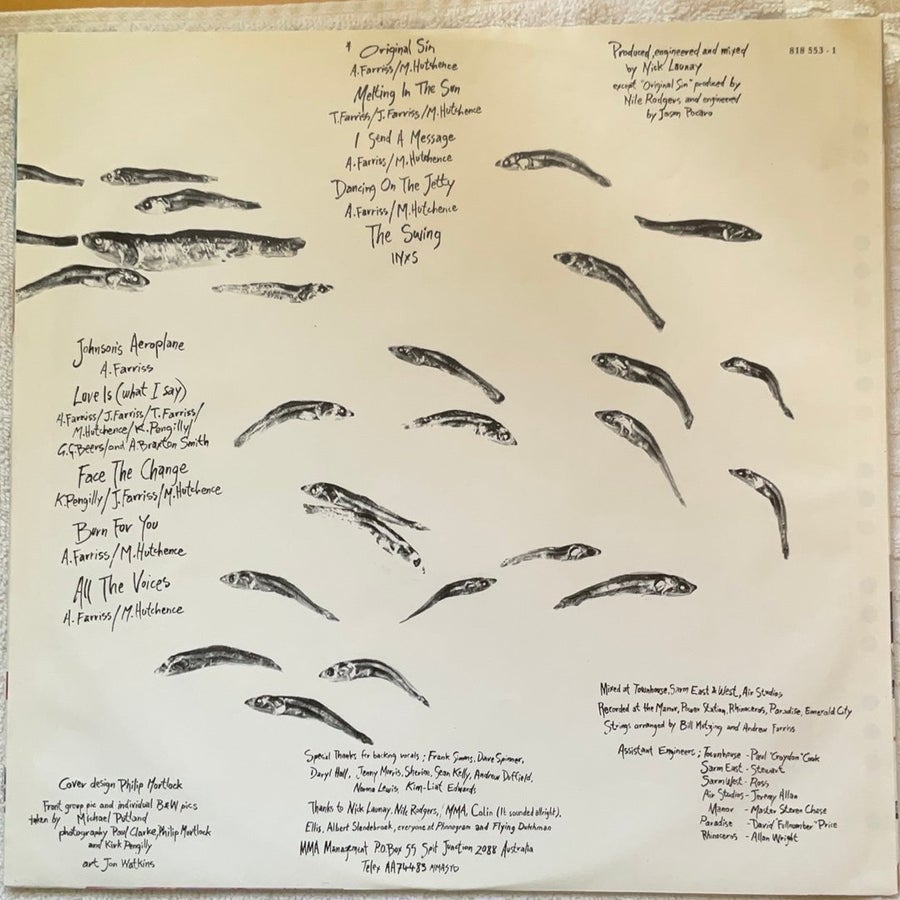 Original Sin
A.Farriss/M.Hutchence
Melting In The Sun
T.Farriss/J.Farriss/M.Hutchence
I Send A Message
A.Farriss/M.Hutchence
Dancing On The Jetty
A.Farriss/M.Hutchence
The Swing
INXS
Produced, engineered and mixed
by Nick Launay
except "Original Sin" produced by
Nile Rodgers, and engineered
by Jason Pocaro
818 553 - 1
Johnson's Aeroplane
A.Farriss
Love Is (what I say)
A.Farriss/J.Farriss/T.Farriss/
M.Hutchence/K.Pengilly/
G.G.Beers/and A.Braxton Smith
Face The Change
K.Pengilly/J.Farriss/M.Hutchence
Burn For You
A.Farriss/M.Hutchence
All The Voices
A.Farriss/M.Hutchence
Mixed at Townhouse, Sarm East & West, Air Studios
Recorded at the Manor, Power Station, Rhinoceros, Paradise, Emerald City
Strings arranged by Bill Motzing and Andrew Farriss
Assistant Engineers; Townhouse - Paul "Croydon" Cook
Sarm East - Stewart
Sarm West - Ross
Air Studios - Jeremy Allan
Manor - Master Steven Chase
Paradise - David "Price
Rhinoceros - Allan Wright
Special Thanks for backing vocals; Frank Simms, Dave Spinner,
Daryl Hall, Jenny Morris, Sherine, Sean Kelly, Andrew Duffield,
Norma Lewis, Kim-Liat Edwards
Thanks to Nick Launay, Nile Rodgers, MMA, Colin (It sounded allright),
Ellis, Albert Slendebroek, everyone at Phonogram and Flying Dutchman
MMA Management P.O.Box 55 Spit Junction 2088 Australia
Telex AA74483 MMASYD
Cover design Philip Mortlock
Front group pic and individual B&W pics
taken by Michael Putland
photography Paul Clarke, Philip Mortlock
and Kirk Pengilly
art Jon Watkins